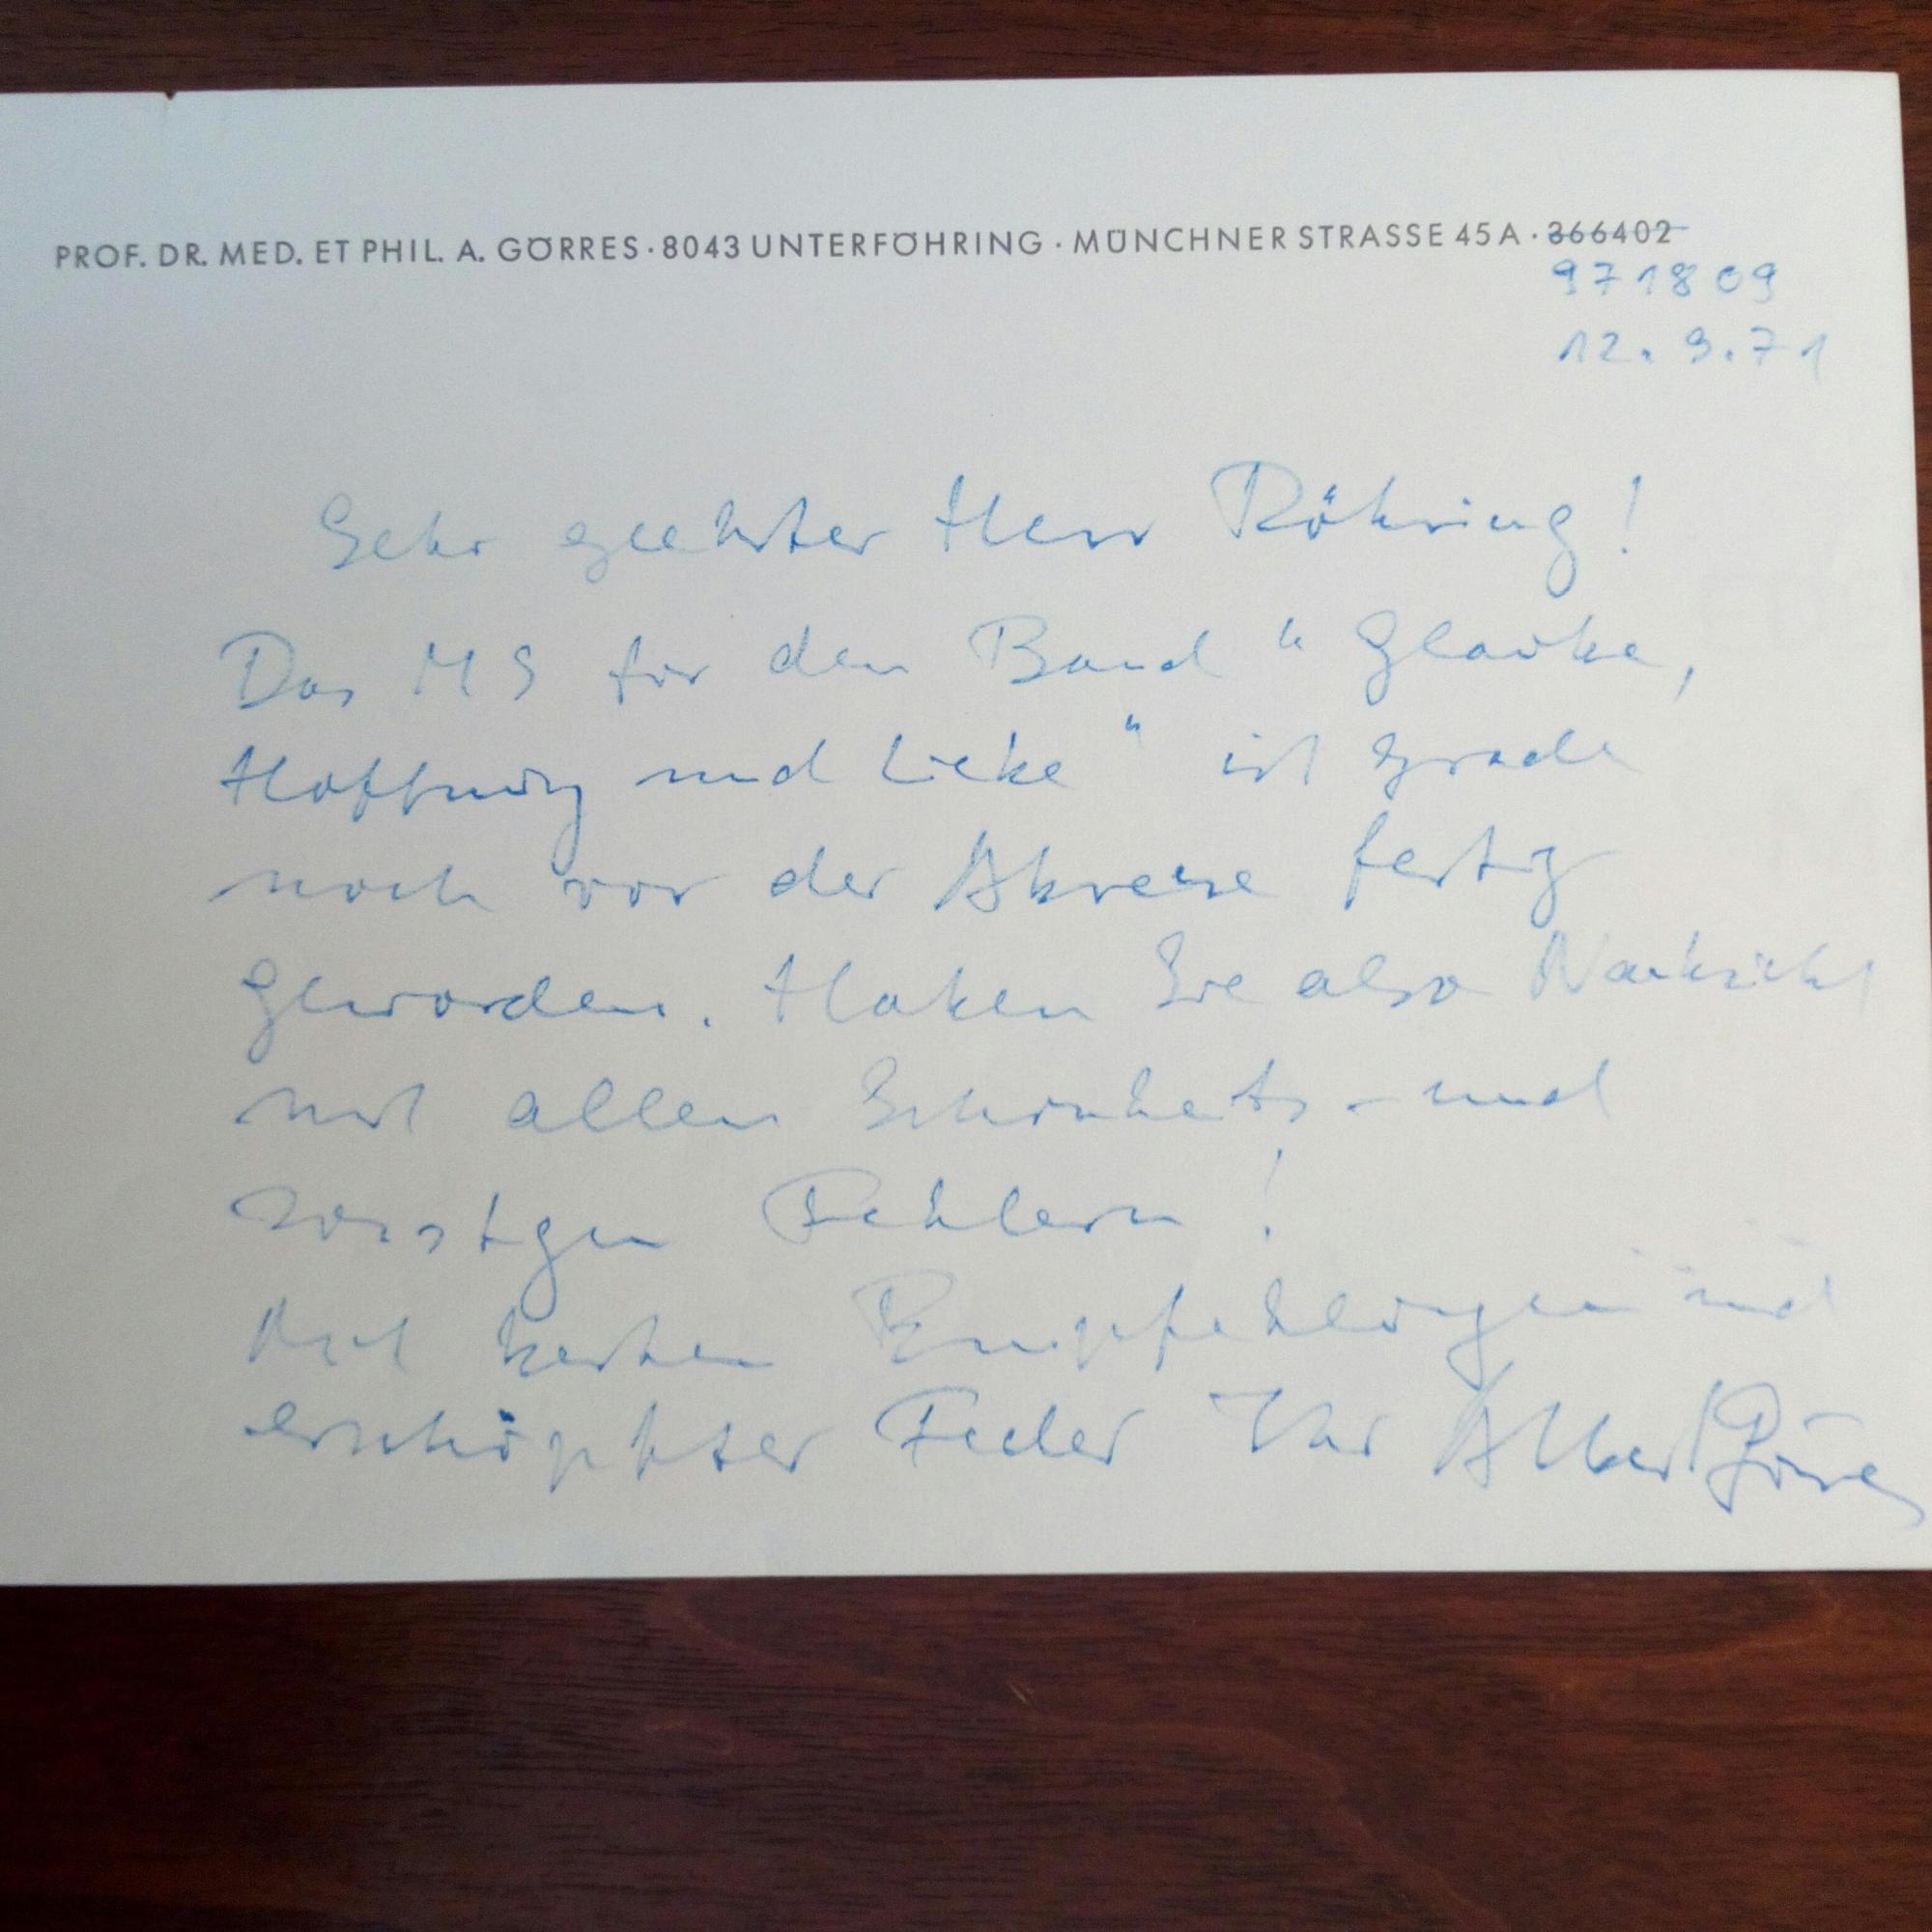 PROF. DR. MED. ET PHIL. A. GÖRRES · 8043 UNTERFÖHRING · MÜNCHNER STRASSE 45A · 366402
971809
12. 9. 71
Sehr geehrter Herr Röhring!
Das MS für den Band "Glaube,
Hoffnung und Liebe" ist grade
noch vor der Abreise fertig
geworden. Haben Sie also Nachsicht
mit allen Schönheits- und
sonstigen Fehlern!
Mit besten Empfehlungen und
erschöpfter Feder Ihr Albert Görres